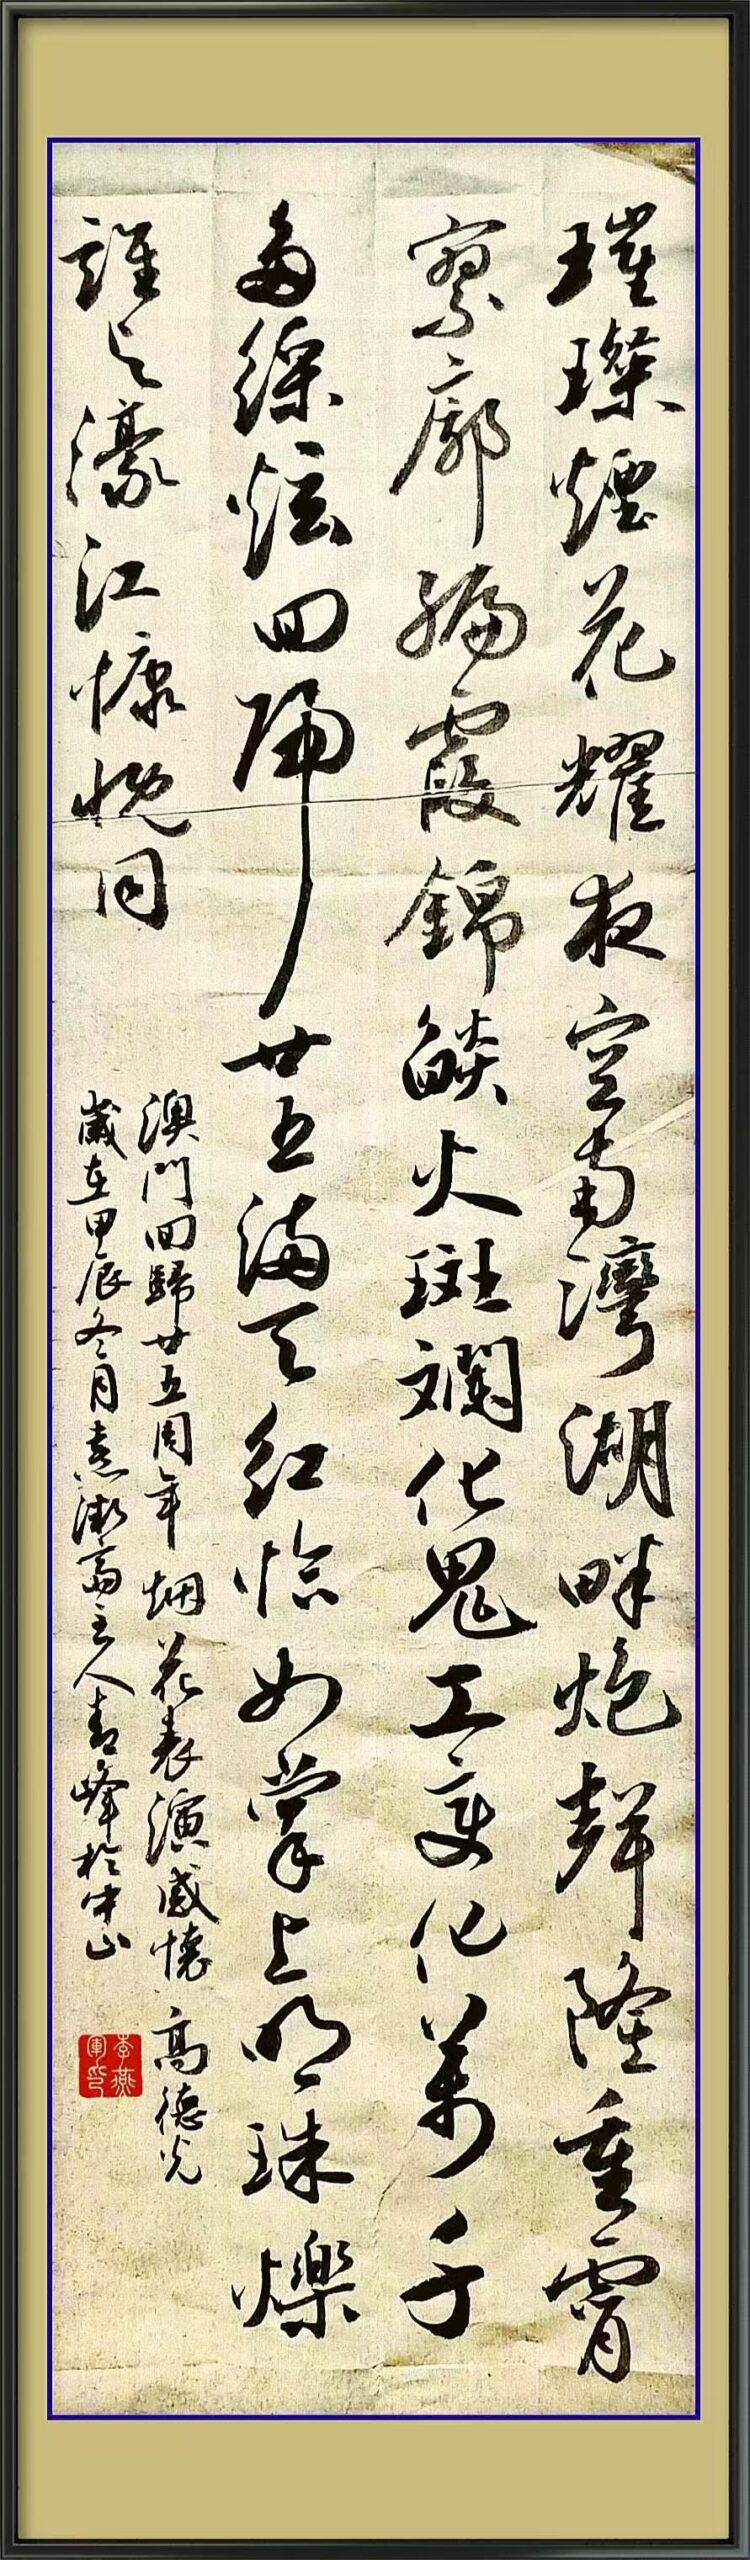 璀璨煙花耀夜空南灣湖畔炮聲隆重霄
寥廓編霞錦燄火斑斕化鬼工變化萬千
多綵炫回歸廿五滿天紅恰如掌上明珠爍
誰濠江慷慨同
澳門回歸廿五周年烟花表演感懷 高德光
歲在甲辰冬月漱齋主人峰於中山
李燕軍印